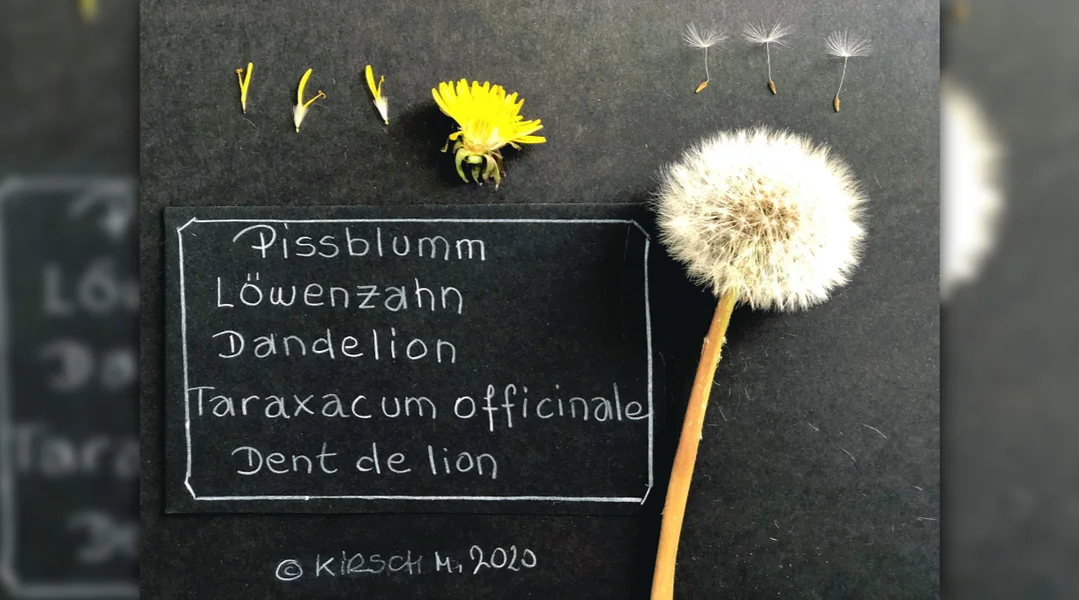 Pissblumm
Löwenzahn
Dandelion
Taraxacum officinale
Dent de lion
© KIRSCH M. 2020